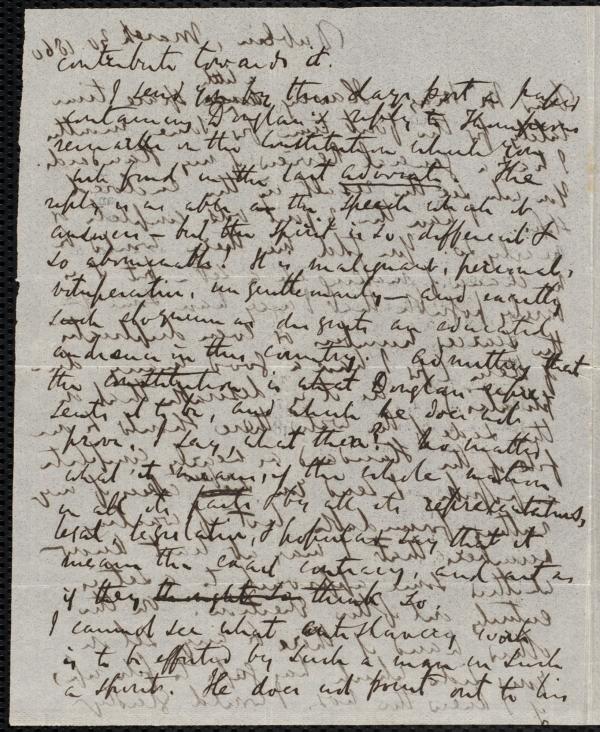 contribute towards it.
I send you by this day's post a paper
containing Douglass's reply to Thompson's
remarks on the Constitution which you
will find in the last Advocate. The
reply is as able as the speech which it
answers — but the spirit is so different &
so abominable! It is malignant, personal,
vituperative, ungentlemanly — and exactly
such eloquence as disgusts an educated
audience in this country. Admitting that
the Constitution is what Douglass repre-
sents it to be, and which he does not
prove, I say, what then? No matter
what it means, if the whole nation
in all its parts by all its representatives,
legal, legislative, & popular say that it
means the exact contrary, and act as
if they thought so think so.
I cannot see what antislavery work
is to be effected by such a man in such
a spirit. He does not point out to his